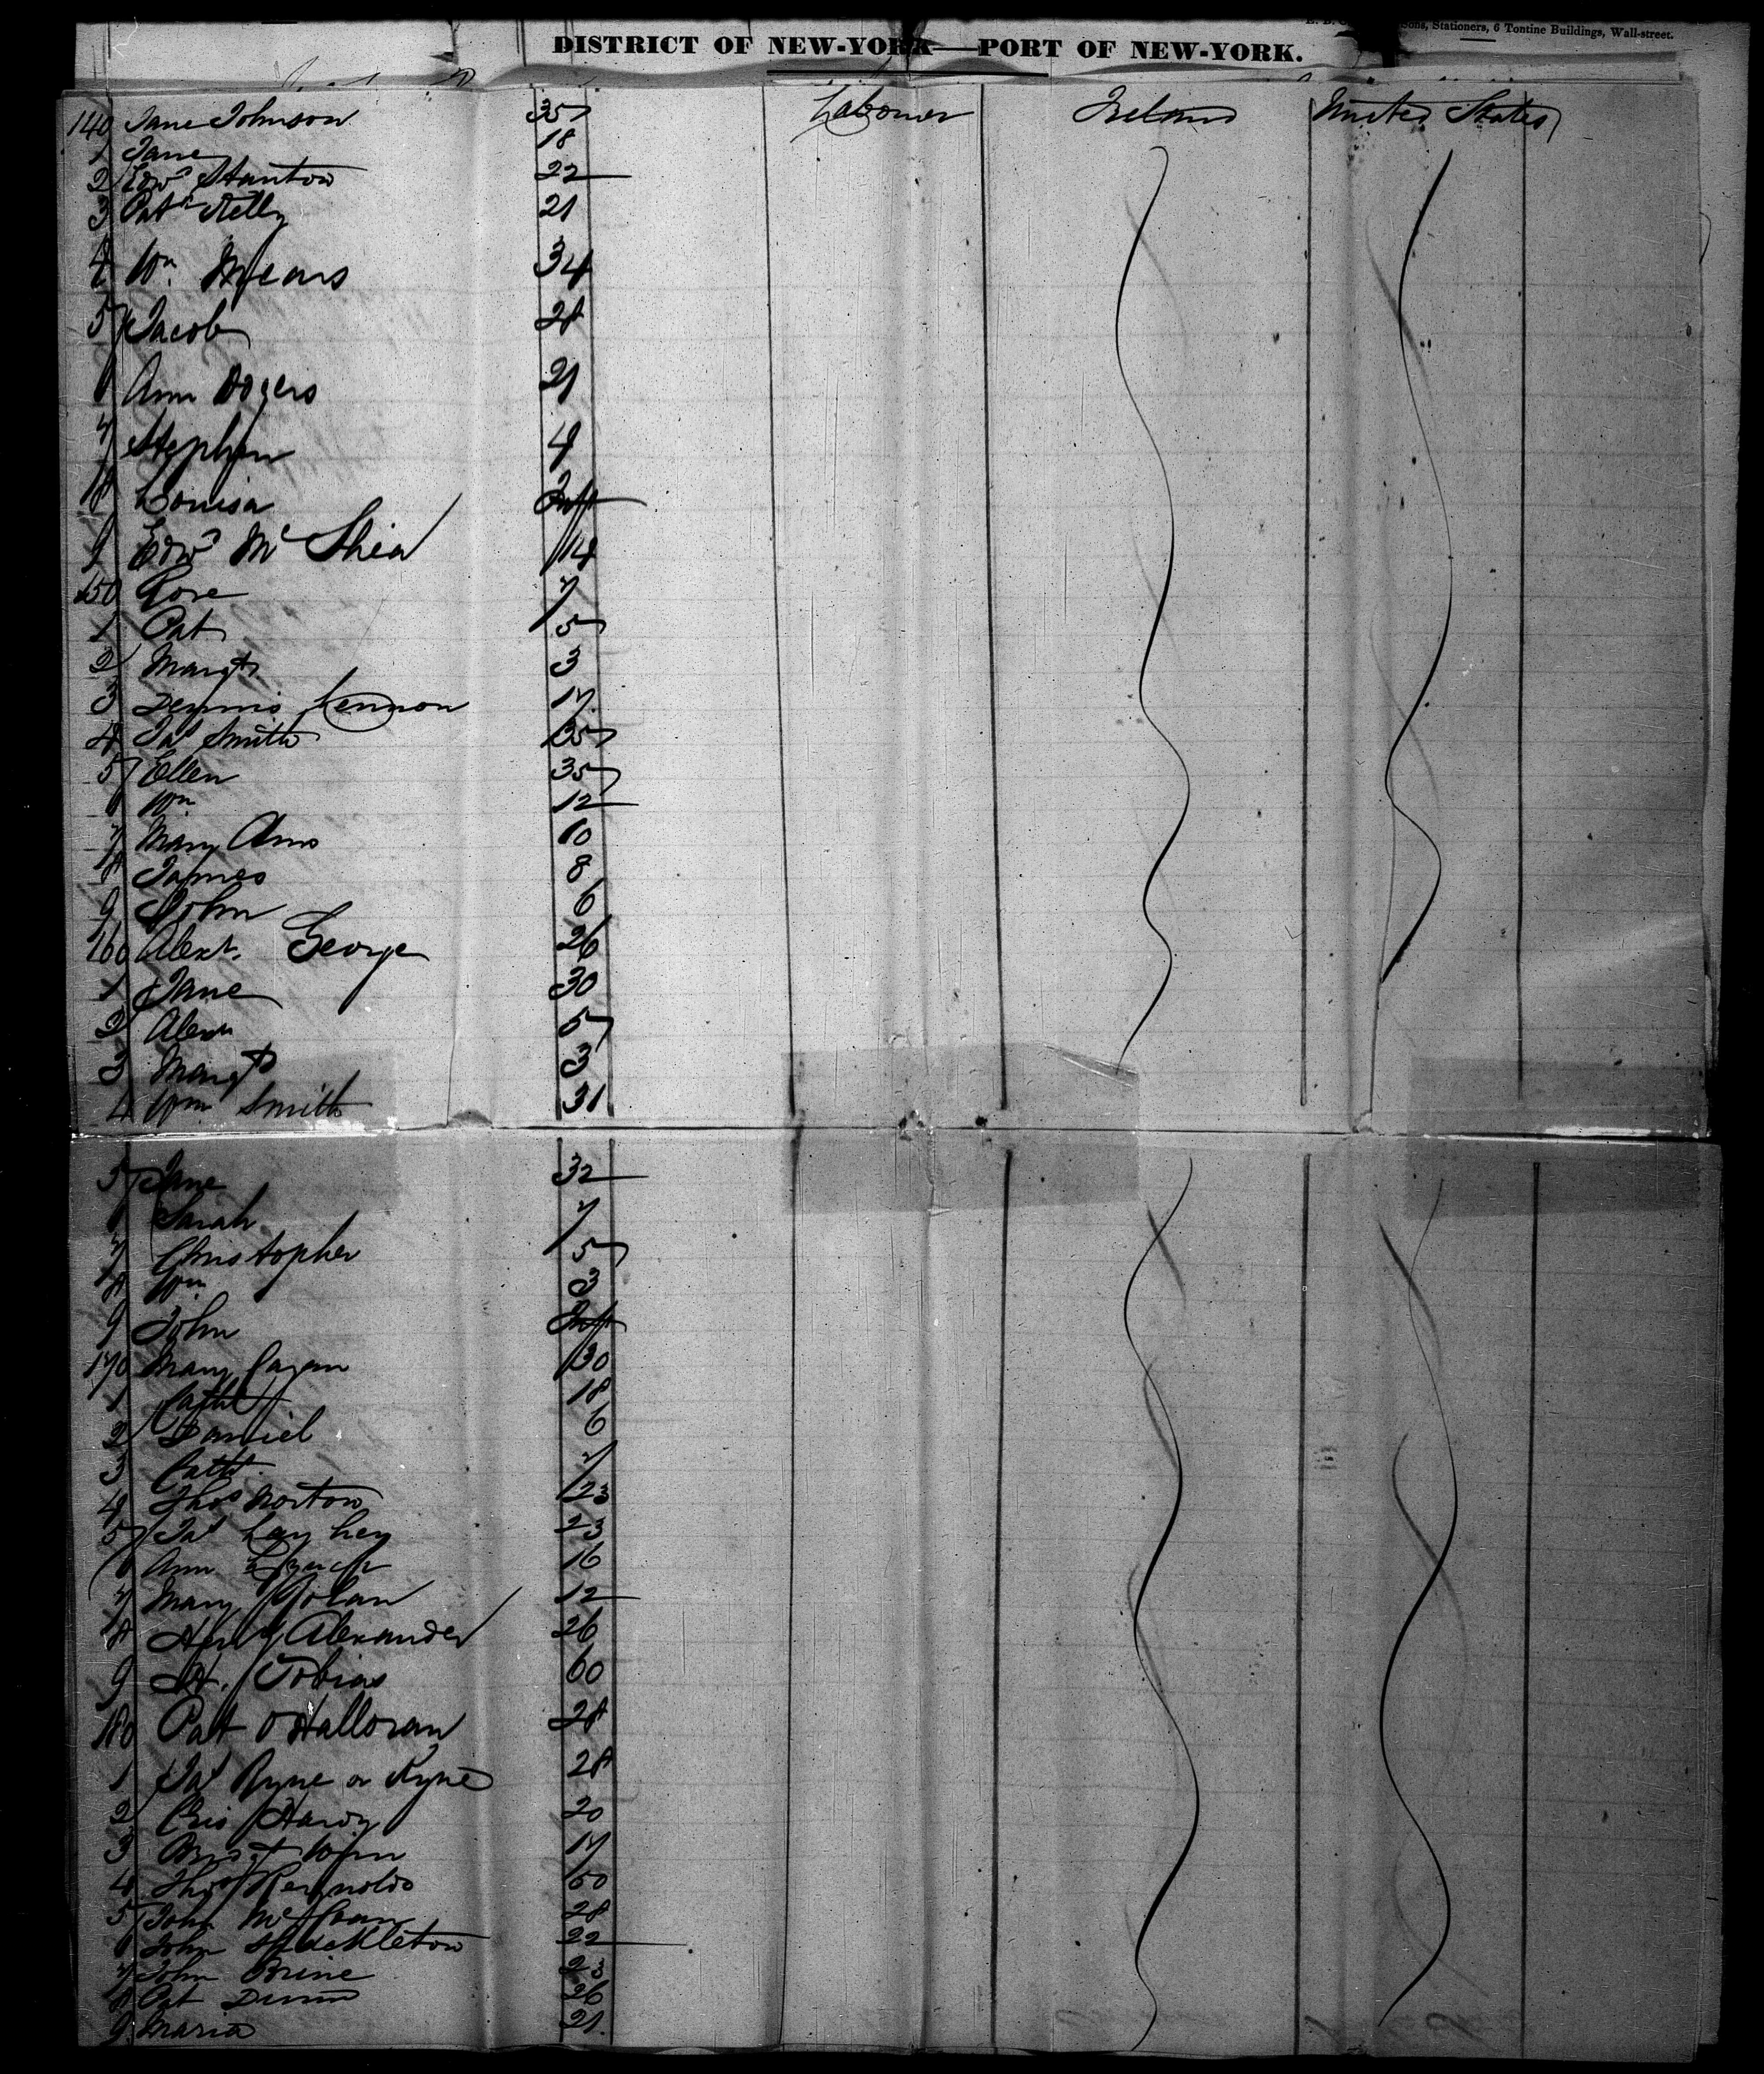 Sons, Stationers, 6 Tontine Buildings, Wall-street.
DISTRICT OF NEW-YORK—PORT OF NEW-YORK.
140 Jane Johnson 35 Labourer Ireland United States
1 Jane 18
2 Edwd Stanton 22
3 Patk Kelly 21
4 Wm. Mears 34
5 Jacob 28
6 Ann Rogers 21
7 Stephen 4
8 Louisa Inft
9 Edwd Mc Shea 14
150 Rose 7
1 Pat 5
2 Margt 3
3 Dennis Lennon 17
4 Jas Smith 35
5 Ellen 35
6 Wm 12
7 Mary Ann 10
8 James 8
9 John 6
160 Alexr. George 26
1 Jane 30
2 Alexr 5
3 Margt 3
4 Wm Smith 31
5 Jane 32
6 Sarah 7
7 Christopher 5
8 Wm 3
9 John Inft
170 Mary Cagan 30
1 Cathe 18
2 Daniel 6
3 Cathe 7
4 Thos Norton 23
5 Jas Layhey 23
6 Ann Lynch 16
7 Mary Golan 12
8 Henry Alexander 26
9 H. Tobias 60
180 Pat O Halloran 28
1 Jas Ryne or Kyne 28
2 Chis Hardy 20
3 Bridgt 17
4 Thos Reynolds 60
5 John 28
6 John Shackleton 22
7 John Brine 23
8 Pat Dunn 26
9 Maria 21.